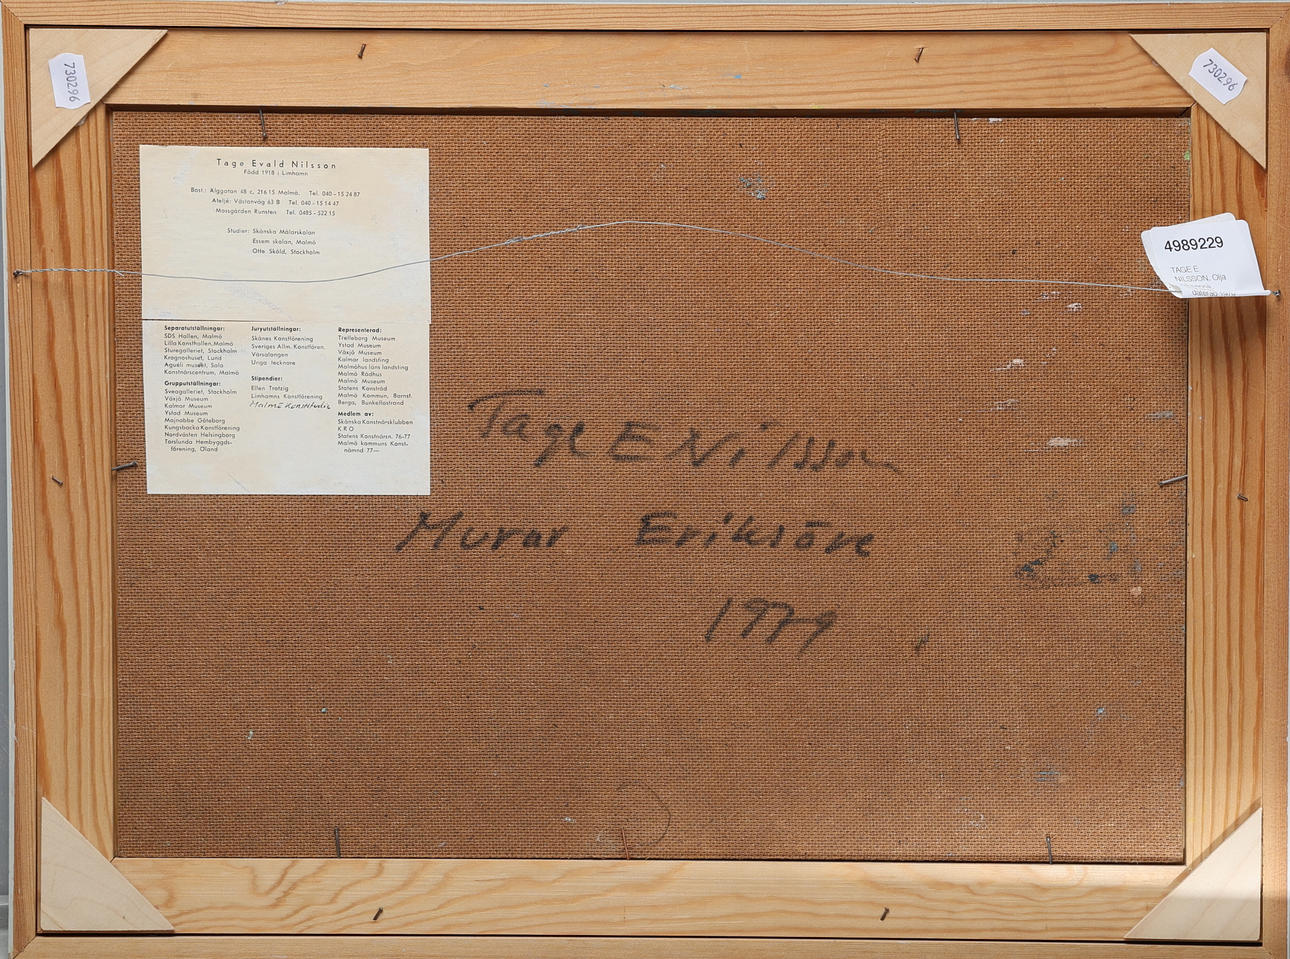 730296
730296
Tage Evald Nilsson
Född 1918 i Limhamn
Bost.: Alggatan 48 c, 216 15 Malmö. Tel. 040 - 15 24 87
Ateljé: Västanväg 63 B Tel. 040 - 15 14 47
Mossgården Runsten Tel. 0485 - 522 15
Studier: Skånska Målarskolan
Essem skolan, Malmö
Otte Sköld, Stockholm
Separatutställningar:
SDS Hallen, Malmö
Lilla Konsthallen, Malmö
Sturegalleriet, Stockholm
Krognoshuset, Lund
Aguéli muséet, Sala
Konstnärscentrum, Malmö
Grupputställningar:
Sveagalleriet, Stockholm
Växjö Museum
Kalmar Museum
Ystad Museum
Majnabbe Göteborg
Kungsbacka Konstförening
Nordvästen Helsingborg
Torslunda Hembygds-
förening, Öland
Juryutställningar:
Skånes Konstförening
Sveriges Allm. Konstfören.
Vårsalongen
Unga tecknare
Stipendier:
Ellen Trotzig
Limhamns Konstförening
Malmö
Representerad:
Trelleborg Museum
Ystad Museum
Växjö Museum
Kalmar landsting
Malmöhus läns landsting
Malmö Rådhus
Malmö Museum
Statens Konstråd
Malmö Kommun, Barnst.
Berga, Bunkeflostrand
Medlem av:
Skånska Konstnärsklubben
K R O
Statens Konstnärsn. 76-77
Malmö kommuns Konst-
nämnd 77—
4989229
TAGE E
NILSSON, Olja
Tage E Nilsson
Murar Eriksöre
1979